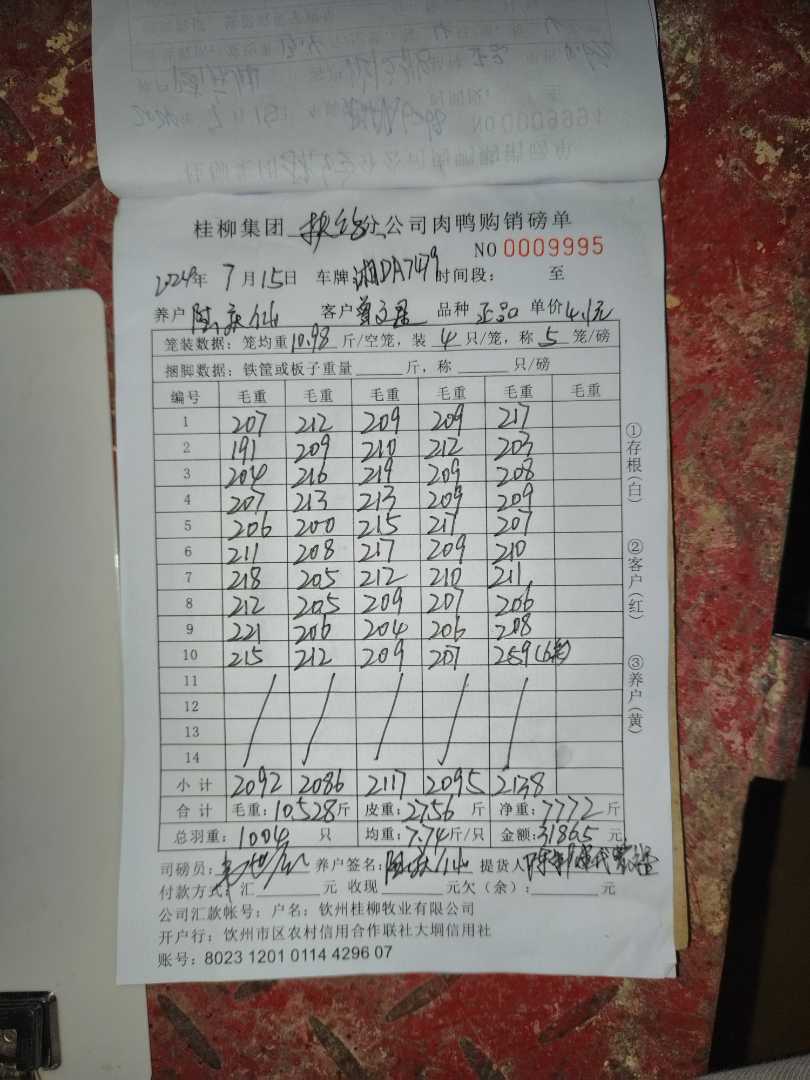 桂柳集团 分公司肉鸭购销磅单
NO 0009995
2024年 7月15日 车牌:湘DA7479 时间段: 至
养户 陆庆仙 客户 曾文君 品种 正品 单价 4.1元
笼装数据:笼均重 10.98 斤/空笼,装 4 只/笼,称 5 笼/磅
捆脚数据:铁筐或板子重量 斤,称 只/磅
编号 毛重 毛重 毛重 毛重 毛重 毛重
1 207 212 209 209 217
2 191 209 210 212 203
3 204 216 219 209 208
4 207 213 213 209 209
5 206 200 215 217 207
6 211 208 217 209 210
7 218 205 212 210 211
8 212 205 209 207 206
9 221 206 204 206 208
10 215 212 209 207 259(6笼)
11
12
13
14
小计 2092 2086 2117 2095 2138
合计 毛重:10528斤 皮重:2756 斤 净重:7772 斤
总羽重:1004 只 均重:7.74斤/只 金额:31865 元
司磅员: 养户签名:陆庆仙 提货人
付款方式:汇 元 收现 元欠(余): 元
公司汇款帐号:户名:钦州桂柳牧业有限公司
开户行:钦州市区农村信用合作联社大垌信用社
账号:8023 1201 0114 4296 07
①存根(白)
②客户(红)
③养户(黄)